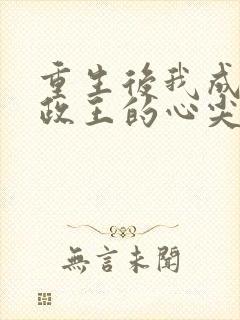 重生後我成
政王的心尖
無言未聞